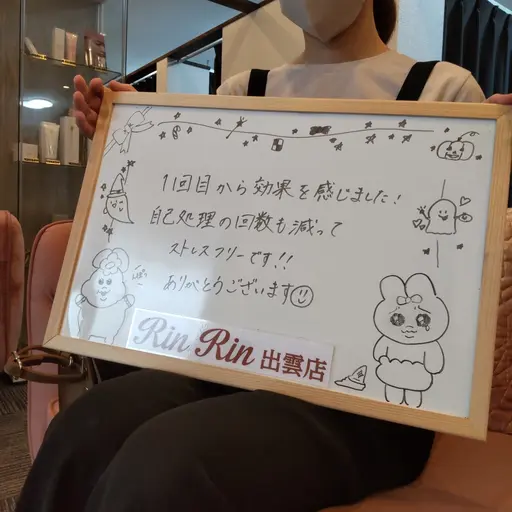 11回目から効果を感じました!
自己処理の回数も減って
ストレスフリーです!!
ありがとうございます
Rin Rin 出雲店